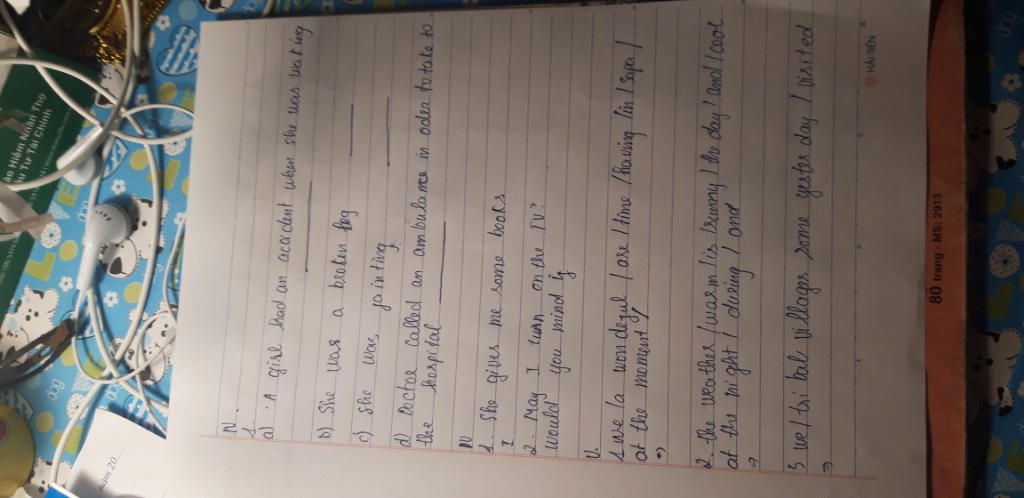 IV.
1.
a) A girl had an accident when she was waking
b) She was a broken leg
c) she was fainting
d) Doctor called an ambulance in oder to take to
the hospital
IV
1. She gives me some books
I
2. May I turn on the TV?
would you mind if
V.
1 we / a wondeful / are / time / having / in / sapa /
at the moment /
=>
2. the weather / warm / is / sunny / the day / and / cool
at the night / during / and
=>
3 we / tri bal villages some yesterday / visited
=>
HẢI TIẾN
80 trang - MS: 2913
ảo Hiểm Nhân Thọ
ầu Tư Tài Chính
năm 20...
dog